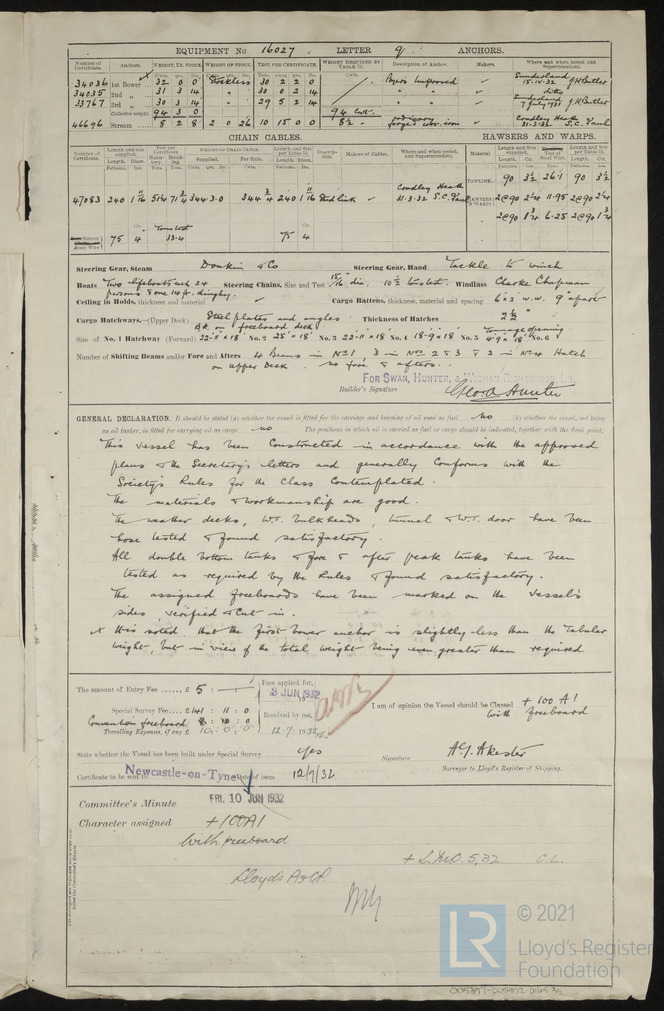 EQUIPMENT No 16027. LETTER q. ANCHORS.
Number of Certificate. Anchors. WEIGHT, EX. STOCK. WEIGHT OF STOCK. TEST, PER CERTIFICATE. WEIGHT REQUIRED BY TABLE 31. Description of Anchor. Makers. Where and when tested and Superintendent.
34036 1st Bower 32 0 0 Stockless 30 2 2 0 Byers Improved Sunderland 15.10.32 J.H. Butler
34035 2nd " 31 3 14 " 30 0 2 14 " " ditto
33767 3rd " 30 3 14 " 29 5 2 14 " " Sunderland 7 July 1931 J.H. Butler
Collective weight. 94 3 0 94 Cwt.
46696 Stream 8 2 8 2 0 26 10 15 0 0 8½ Cradley Heath 31-3-32 S.C. Paul
CHAIN CABLES. HAWSERS AND WARPS.
Number of Certificate. Length and size supplied. Test per Certificate. WEIGHT OF CHAIN CABLE. Length and size per Table 31. Description. Makers of Cables. Where and when tested, and Superintendent. Material. Length and Size supplied. Test of Steel Wire. Length and Size per Table 31.
Supplied. Per Rule.
TOWLINE 90 3½ 26.1 90 3½
47083 240 1 11/16 51¼ 71¾ 344.3.0 344¾ 240 1 11/16 Stud Link Cradley Heath 31-3-32 S.C. Paul HAWSERS & WARPS 2@90 2¼ 11.95 2@90 2¼
2@90 1¾ 6.25 2@90 1¾
Steel Wire 75 4 Tons test 33.4 75 4
Steering Gear, Steam Donkin & Co Steering Gear, Hand Tackle to winch
Boats Two lifeboats each 24 persons & one 14 ft. dinghy. Steering Chains, Size and Test 15/16 dia. 10½ tons test. Windlass Clarke Chapman
Ceiling in Holds, thickness and material Cargo Battens, thickness, material and spacing 6" x 2 w.w. 9" apart
Cargo Hatchways.—(Upper Deck) Steel plates and angles Thickness of Hatches 2½"
Bk. on freeboard deck Tonnage opening
Size of No. 1 Hatchway (Forward) 22'-11" x 18' No. 2 25' x 18' No. 3 22'-11" x 18' No. 4 18'-9" x 18' No. 5 4'-9" x 18' No. 6
Number of Shifting Beams and/or Fore and Afters 4 Beams in No 1, 3 in Nos 2 & 3 & 2 in No 4 Hatch
on Upper Deck. no fore & afters.
FOR SWAN, HUNTER, & WIGHAM RICHARDSON, LD.
Builder's Signature Geo. A. Hunter
GENERAL DECLARATION. It should be stated (a) whether the vessel is fitted for the carriage and burning of oil used as fuel no (b) whether the vessel, not being
an oil tanker, is fitted for carrying oil as cargo no The positions in which oil is carried as fuel or cargo should be indicated, together with the flash point.
This vessel has been constructed in accordance with the approved
plans & the Secretary's letters and generally conforms with the
Society's Rules for the Class Contemplated.
The materials & workmanship are good.
The weather decks, W.T. bulkheads, tunnel & W.T. door have been
hose tested & found satisfactory.
All double bottom tanks & fore & after peak tanks have been
tested as required by the Rules & found satisfactory.
The assigned freeboards have been marked on the vessel's
sides, verified & cut in.
x It is noted that the first bower anchor is slightly less than the tabular
weight, but in view of the total weight being even greater than required
The amount of Entry Fee ...... £ 5 : - : Fees applied for, 3 JUN 1932
Special Survey Fee .... £141 : 11 : 0
Convention freeboard 8 : 10 : 0 Received by me,
Travelling Expenses, if any £ 10 : 0 : 0 12.7.1932
I am of opinion the Vessel should be Classed + 100 A1
with freeboard
State whether the Vessel has been built under Special Survey Yes Signature A.G. Akester
Surveyor to Lloyd's Register of Shipping.
Certificate to be sent to Newcastle-on-Tyne Date of issue 12/7/32
Committee's Minute FRI. 10 JUN 1932
Character assigned +100A1
with freeboard
+ L.M.C. 5,32 C.L.
Lloyd's A&CP.
LR
© 2021
Lloyd's Register
Foundation
005397-005402-0165 3/3